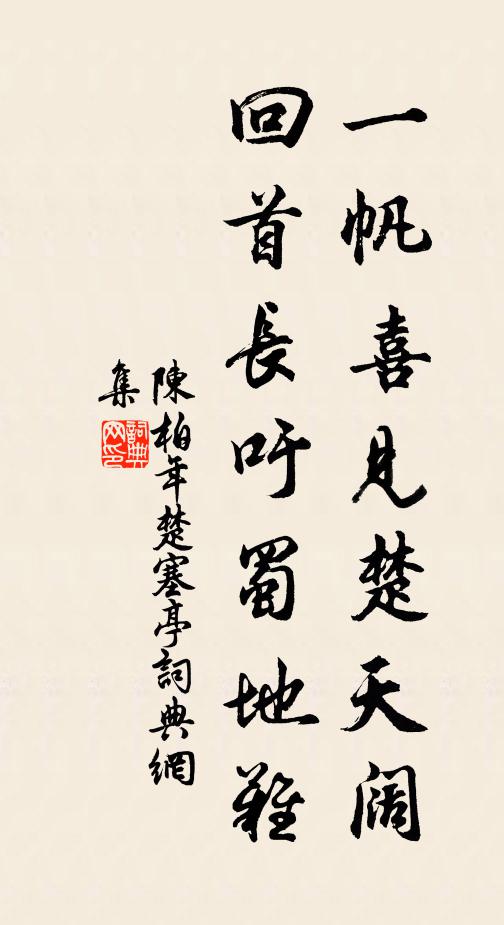 一帆喜見楚天阔
回首長吁蜀地難
陳柏年楚塞亭詞典網
集
詞典网印